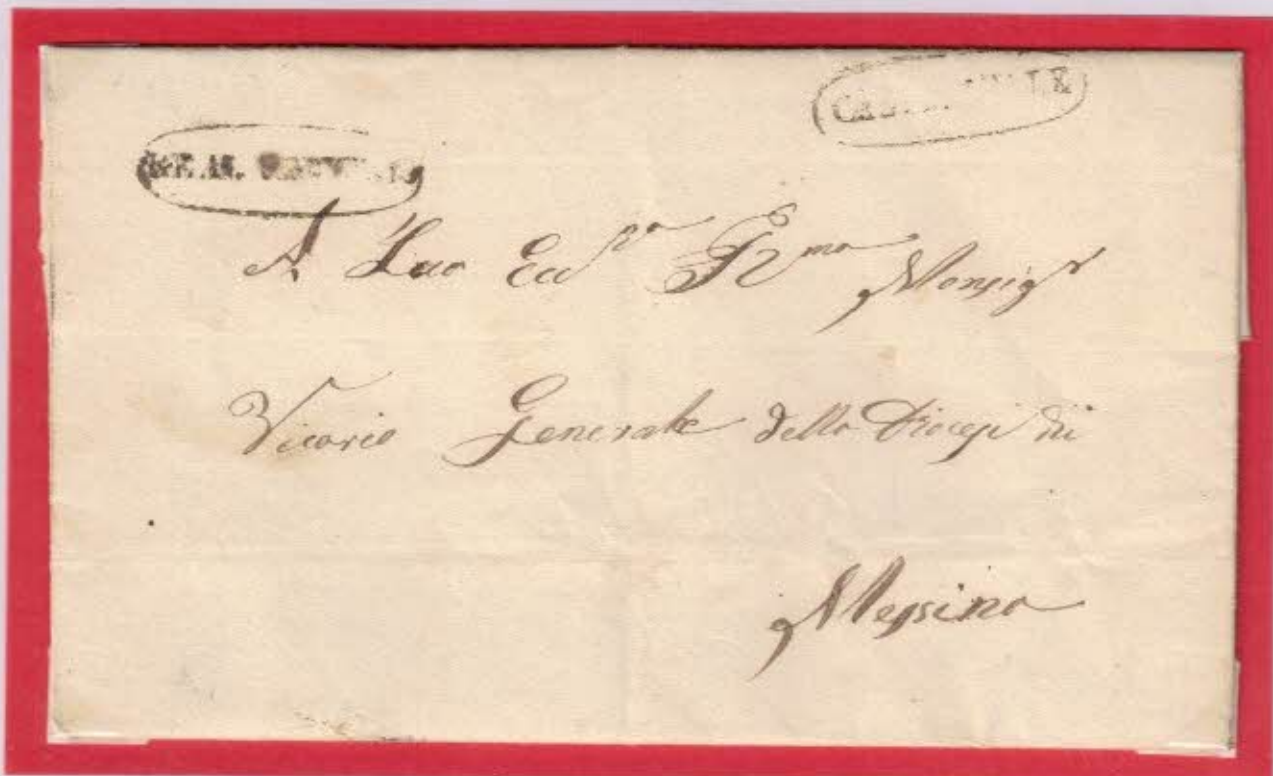 REAL
A Sua Ecc.za R.ma Monsig.r
Vicario Generale della Diocesi di
Messina